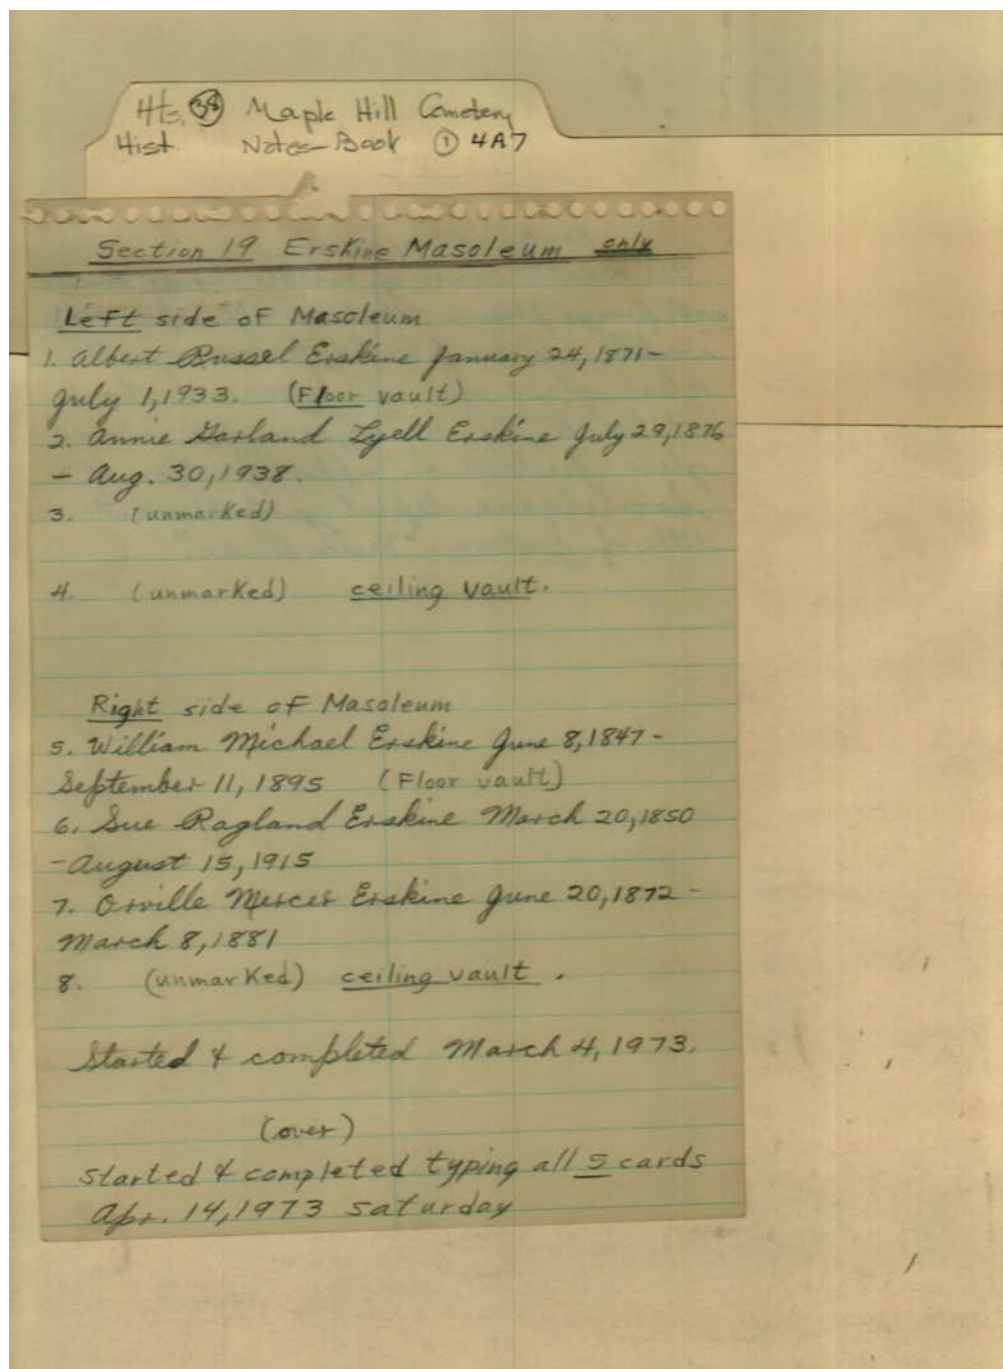 Hts. 38 Maple Hill Cemetery
Hist Notes-Book 1 4A7
Section 19 Erskine Masoleum only
Left side of Masoleum
1. Albert Russel Erskine January 24, 1871-
July 1, 1933. (Floor vault)
2. Annie Garland Lyell Erskine July 29, 1876
- Aug. 30, 1938.
3. (unmarked)
4. (unmarked) ceiling vault.
Right side of Masoleum
5. William Michael Erskine June 8, 1847-
September 11, 1895 (Floor vault)
6. Sue Ragland Erskine March 20, 1850
-August 15, 1915
7. Orville Mercer Erskine June 20, 1872-
March 8, 1881
8. (unmarked) ceiling vault.
Started & completed March 4, 1973.
(over)
started & completed typing all 5 cards
Apr. 14, 1973 saturday